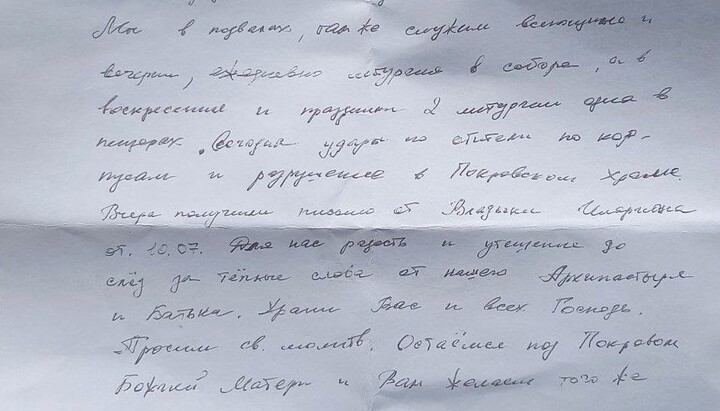 Мы в подвалах, там же служим всенощные и
вечерни, ежедневно литургия в соборе, а в
воскресение и праздники 2 литургии одна в
пещерах. Сегодня удары по обители по кор-
пусам и разрушение в Покровском Храме.
Вчера получили письмо от Владыки Илариона
от. 10.07. Для нас радость и утешение до
слёз за тёплые слова от нашего Архипастыря
и Батька. Храни Вас и всех Господь.
Просим св. молитв. Остаёмся под Покровом
Божией Матери и Вам желаем того же